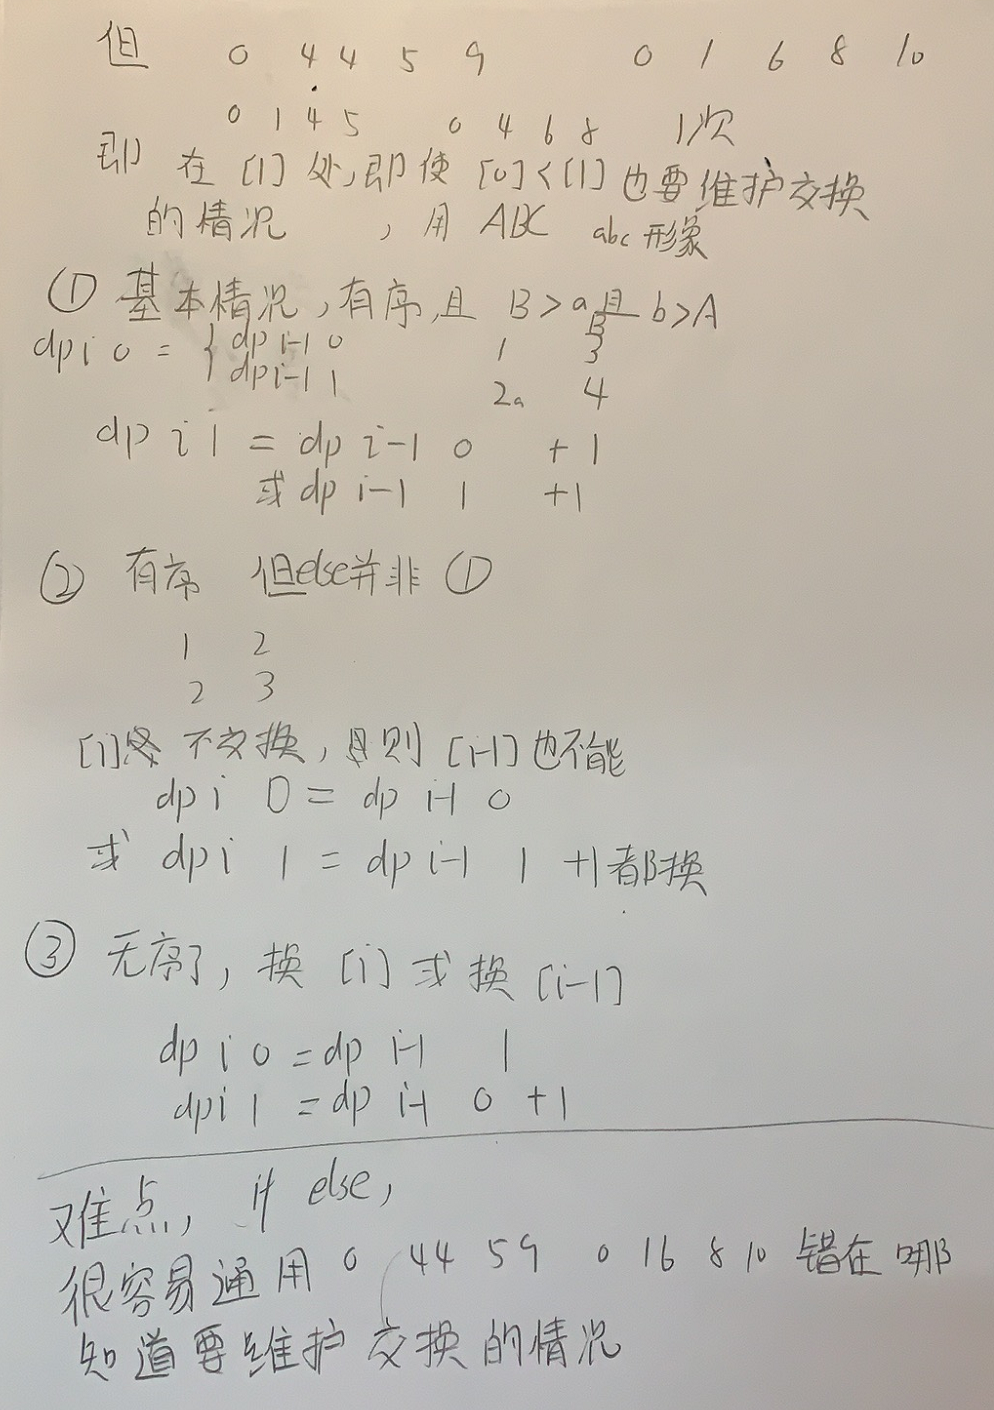 但 0 4 4 5 9 0 1 6 8 10
0 1 4 5 0 4 6 8 1次
即 在 [1] 处,即使 [0]<[1] 也要维护交换
的情况 , 用 ABC abc 形象
① 基本情况,有序,且 B>a且 b>A
dp i 0 = { dp i-1 0 1 B 3
dp i-1 1 2a 4
dp i 1 = dp i-1 0 +1
或 dp i-1 1 +1
② 有序 但else并非 ①
1 2
2 3
[i] 不交换, 则 [i-1] 也不能
dp i 0 = dp i-1 0
或 dp i 1 = dp i-1 1 +1 都换
③ 无序了, 换 [i] 或换 [i-1]
dp i 0 = dp i-1 1
dp i 1 = dp i-1 0 +1
难点, if else,
很容易通用 0 4 4 5 9 0 1 6 8 10 错在哪
知道要维护交换的情况